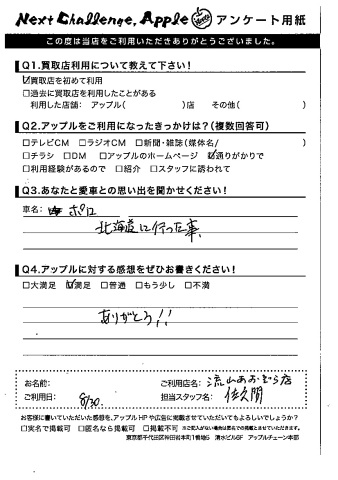 Next Challenge, Apple アンケート用紙
この度は当店をご利用いただきありがとうございました。
Q1.買取店利用について教えて下さい！
☑買取店を初めて利用
□過去に買取店を利用したことがある
利用した店舗： アップル（ ）店 その他（ ）
Q2.アップルをご利用になったきっかけは？（複数回答可）
□テレビCM □ラジオCM □新聞・雑誌（媒体名/ ）
□チラシ □DM □アップルのホームページ ☑通りがかりで
□利用経験があるので □紹介 □スタッフに誘われて
Q3.あなたと愛車との思い出を聞かせください！
車名： ポロ
北海道に行った事、
Q4.アップルに対する感想をぜひお書きください！
□大満足 ☑満足 □普通 □もう少し □不満
ありがとう!!
お名前： ご利用店名： 流山おおぞら店
ご利用日： 8/30. 担当スタッフ名： 佐久間
お客様に書いていただいた感想を、アップルHPや広告に掲載させていただいてもよろしいでしょうか？
□実名で掲載可 □匿名なら掲載可 □掲載不可 ※ご記入がない場合は匿名での掲載とさせていただきます。
東京都千代田区神田岩本町1番地5 清水ビル6F アップルチェーン本部